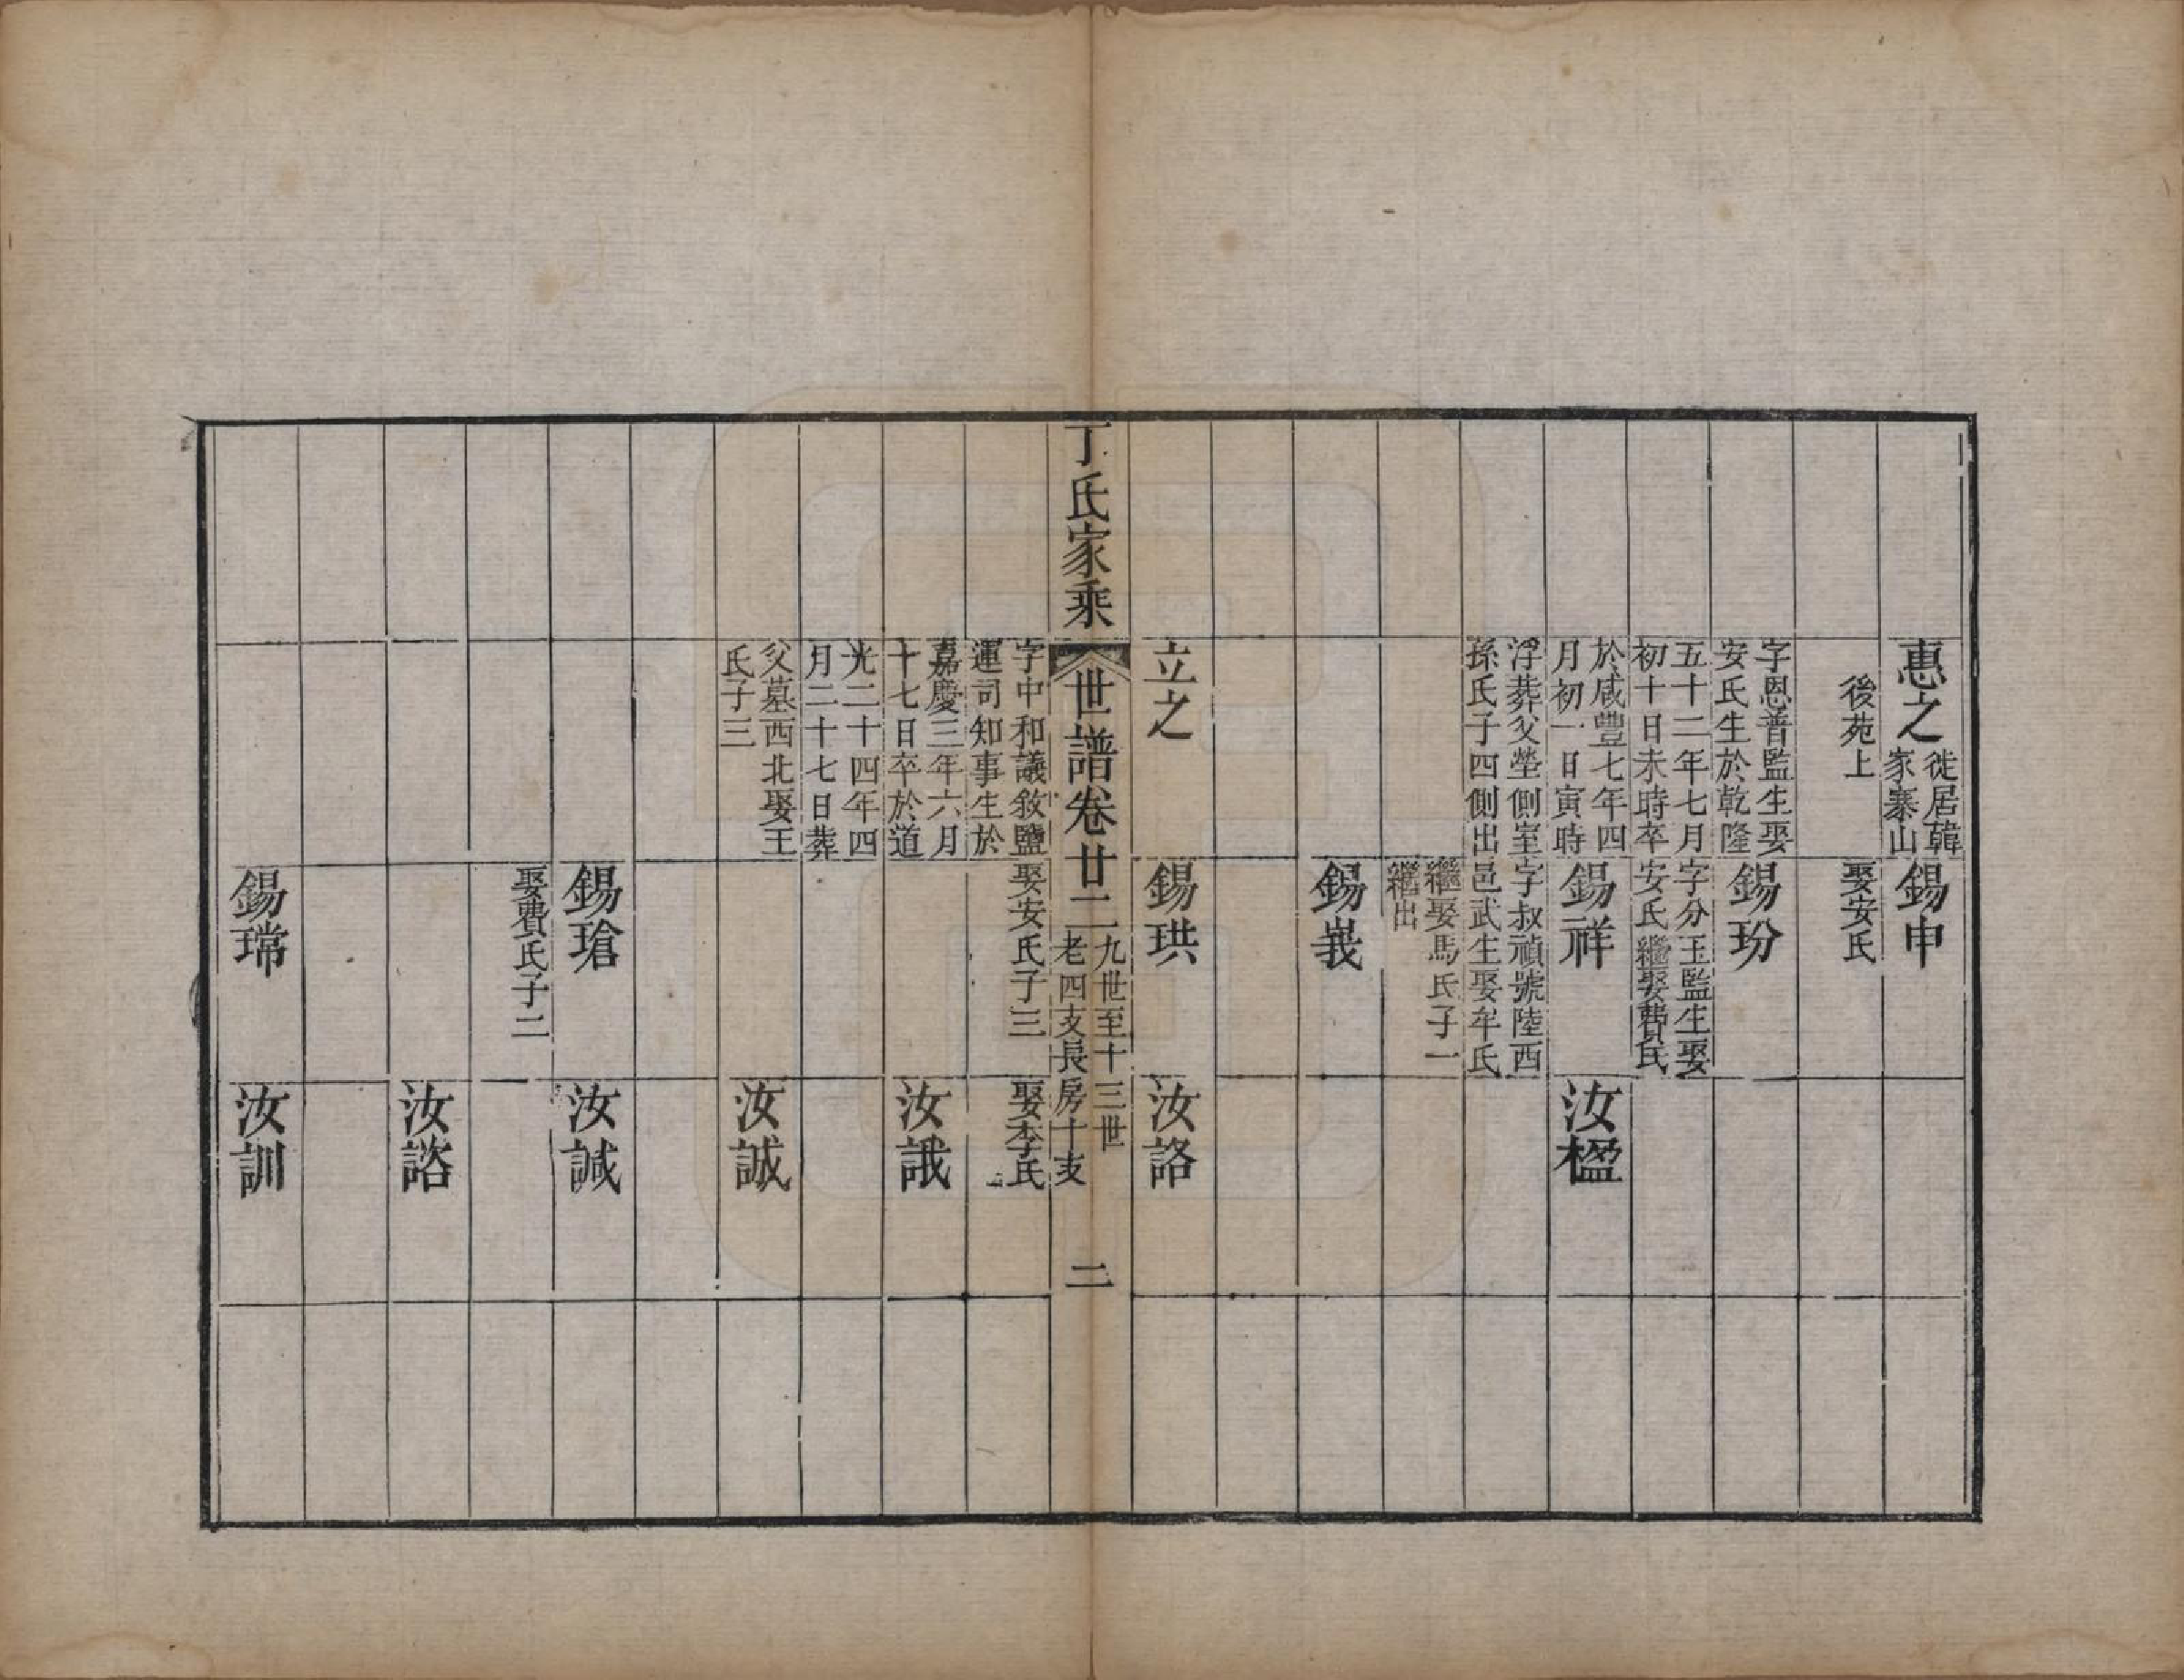 惠之
徙居韓
家寨山
後苑上
字恩普監生娶
安氏生於乾隆
五十二年七月
初十日未時卒
於咸豐七年四
月初一日寅時
浮葬父塋側室
孫氏子四側出
立之
錫申
娶安氏
錫玢
字分玉監生娶
安氏繼娶費氏
錫祥
字叔禎號陸西
邑武生娶牟氏
繼娶馬氏子一
繼出
錫嶪
錫珙
汝楹
汝詻
丁氏家乘
世譜卷廿二
九世至十三世
老四支長房十支
二
字中和議敘鹽
運司知事生於
嘉慶三年六月
十七日卒於道
光二十四年四
月二十七日葬
父墓西北娶王
氏子三
娶安氏子三
錫瑲
娶費氏子二
錫瑺
娶李氏
汝誐
汝誠
汝諴
汝諮
汝訓